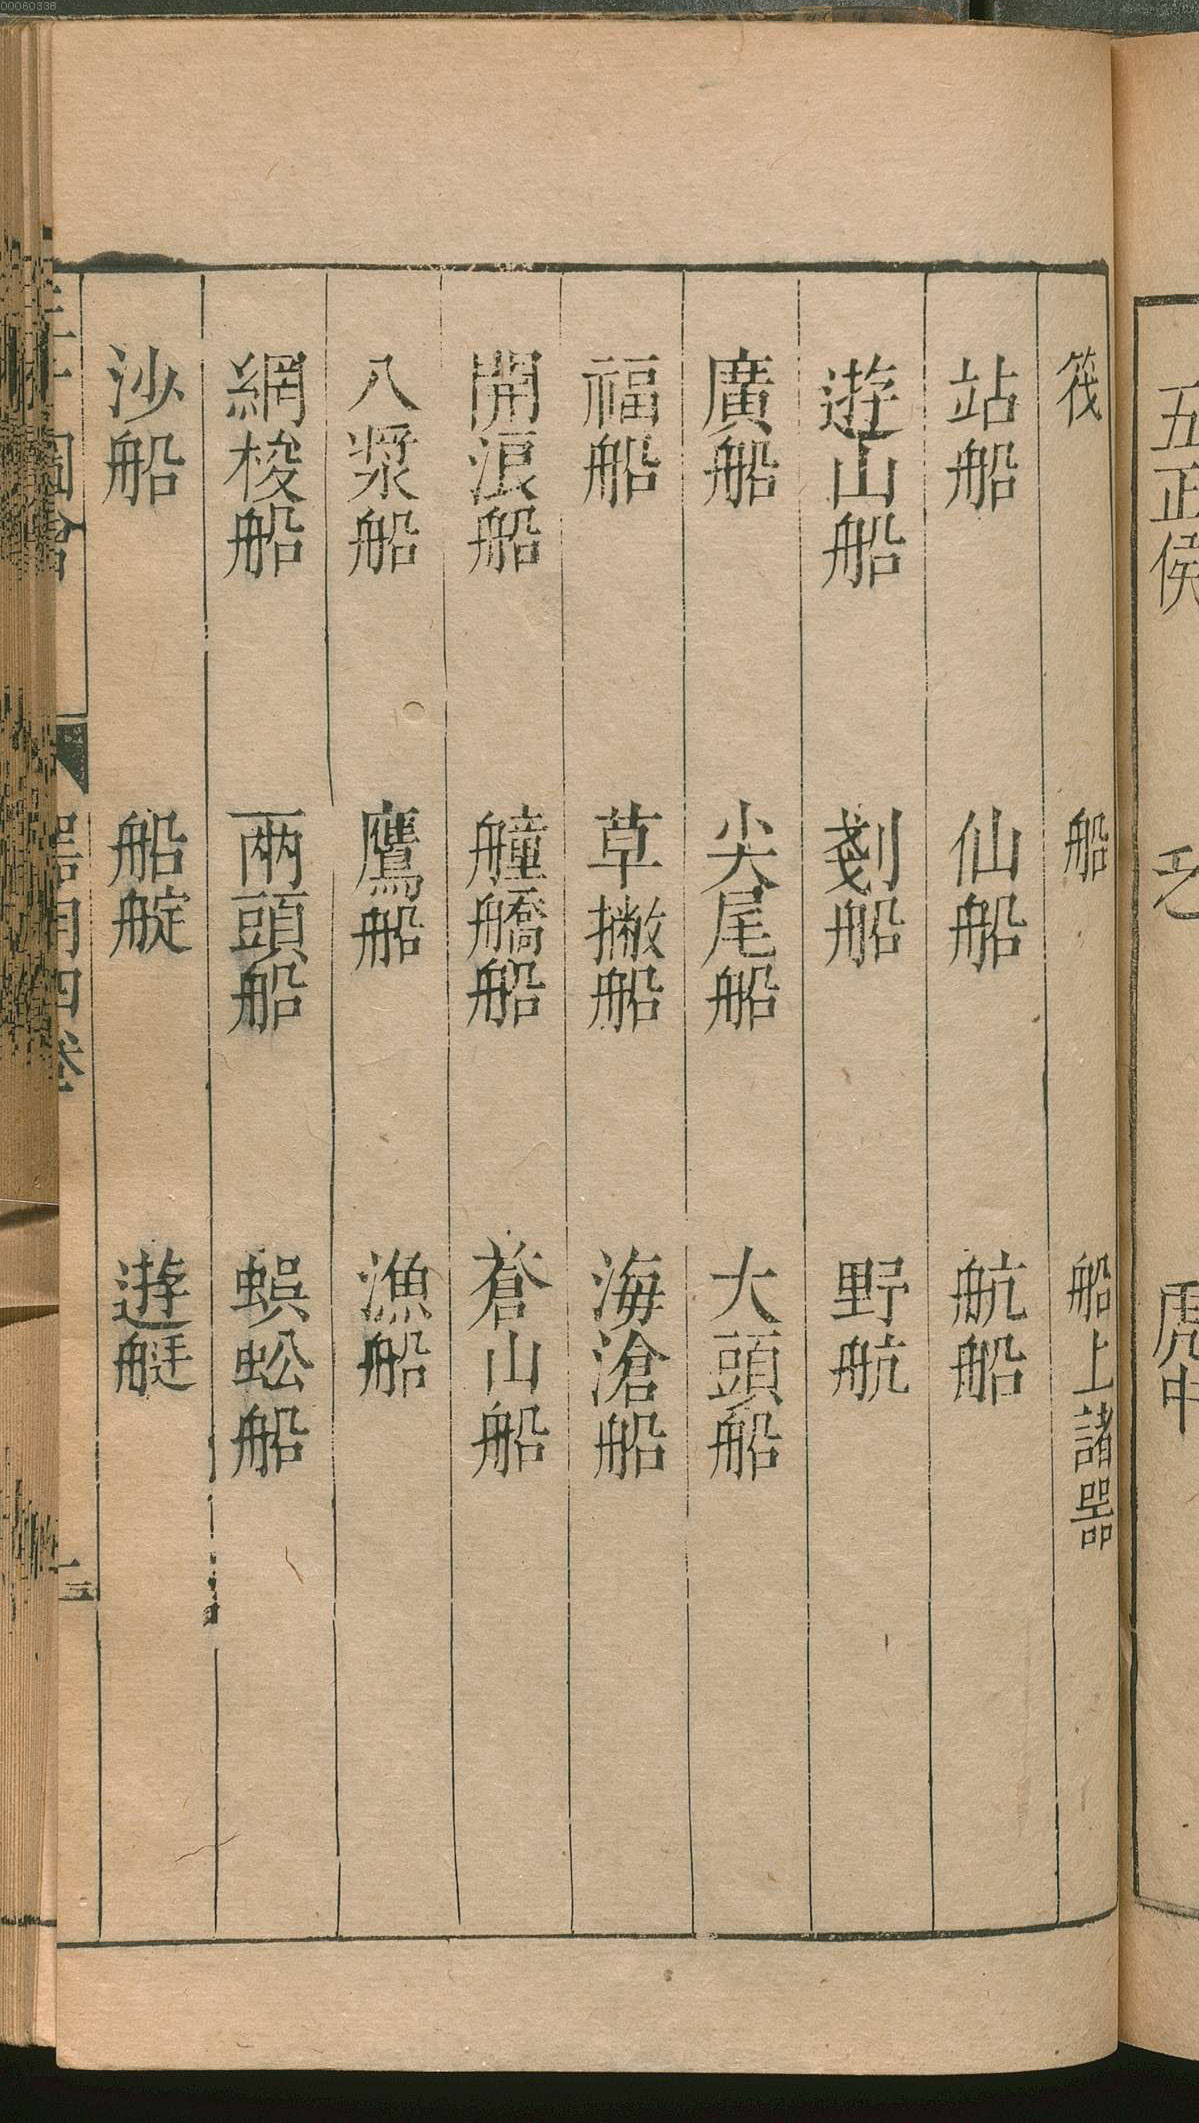 00060338
五正侯 乏 虎中
筏 船 船上諸器
站船 仙船 航船
遊山船 剗船 野航
廣船 尖尾船 大頭船
福船 草撇船 海滄船
開浪船 艟艠船 蒼山船
八槳船 鷹船 漁船
網梭船 兩頭船 蜈蚣船
沙船 船艇 遊艇
三才圖會 器用四卷 三